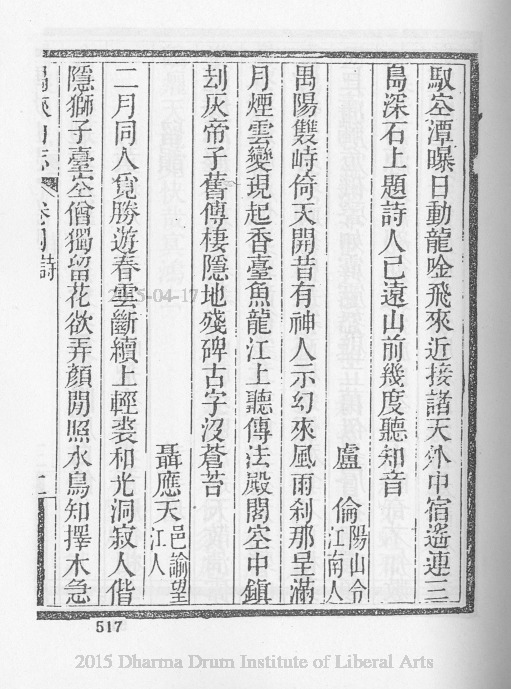 馭空潭曝日動龍唫飛來近接諸天外中宿遙連三
島深石上題詩人已遠山前幾度聽知音
盧倫陽山令江南人
禺陽雙峙倚天開昔有神人示幻來風雨刹那呈滿
月煙雲變現起香臺魚龍江上聽傳法殿閣空中鎮
刦灰帝子舊傳棲隱地殘碑古字沒蒼苔
聶應天邑諭望江人
二月同人覓勝遊春雲斷續上輕裘和光洞寂人偕
隱獅子臺空僧獨留花欲弄顏閒照水鳥知擇木急
卷四詩
2015-04-17
517
2015 Dharma Drum Institute of Liberal Arts